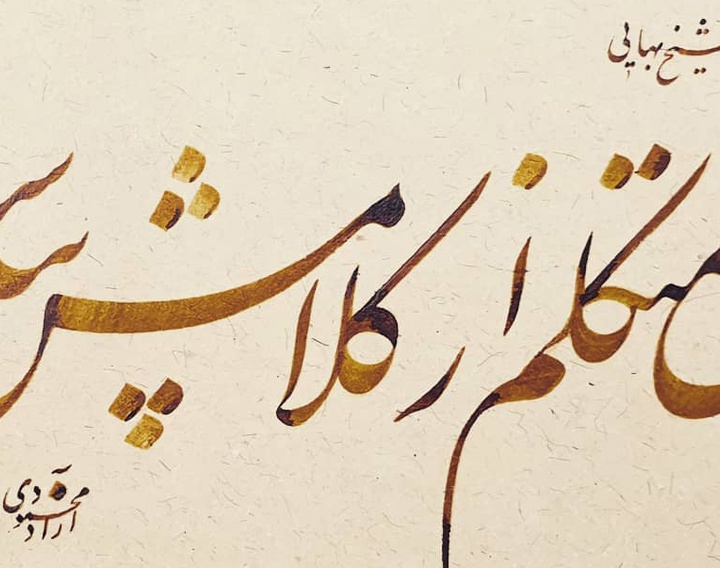 شیخ بهایی
متکلم از کلامش
آزاد محمودی